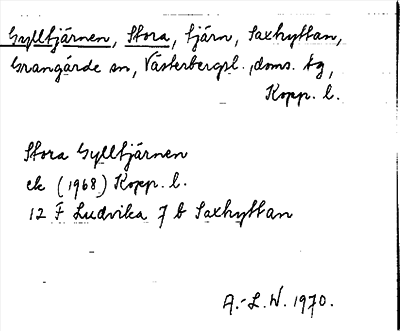 Gylltjärnen, Stora, tjärn, Saxhyttan,
Grangärde sn, Västerbergsl. doms. tg,
Kopp. l.
Stora Gylltjärnen
ek (1968) Kopp. l.
12 F Ludvika 7 b Saxhyttan
A.-L. W. 1970.